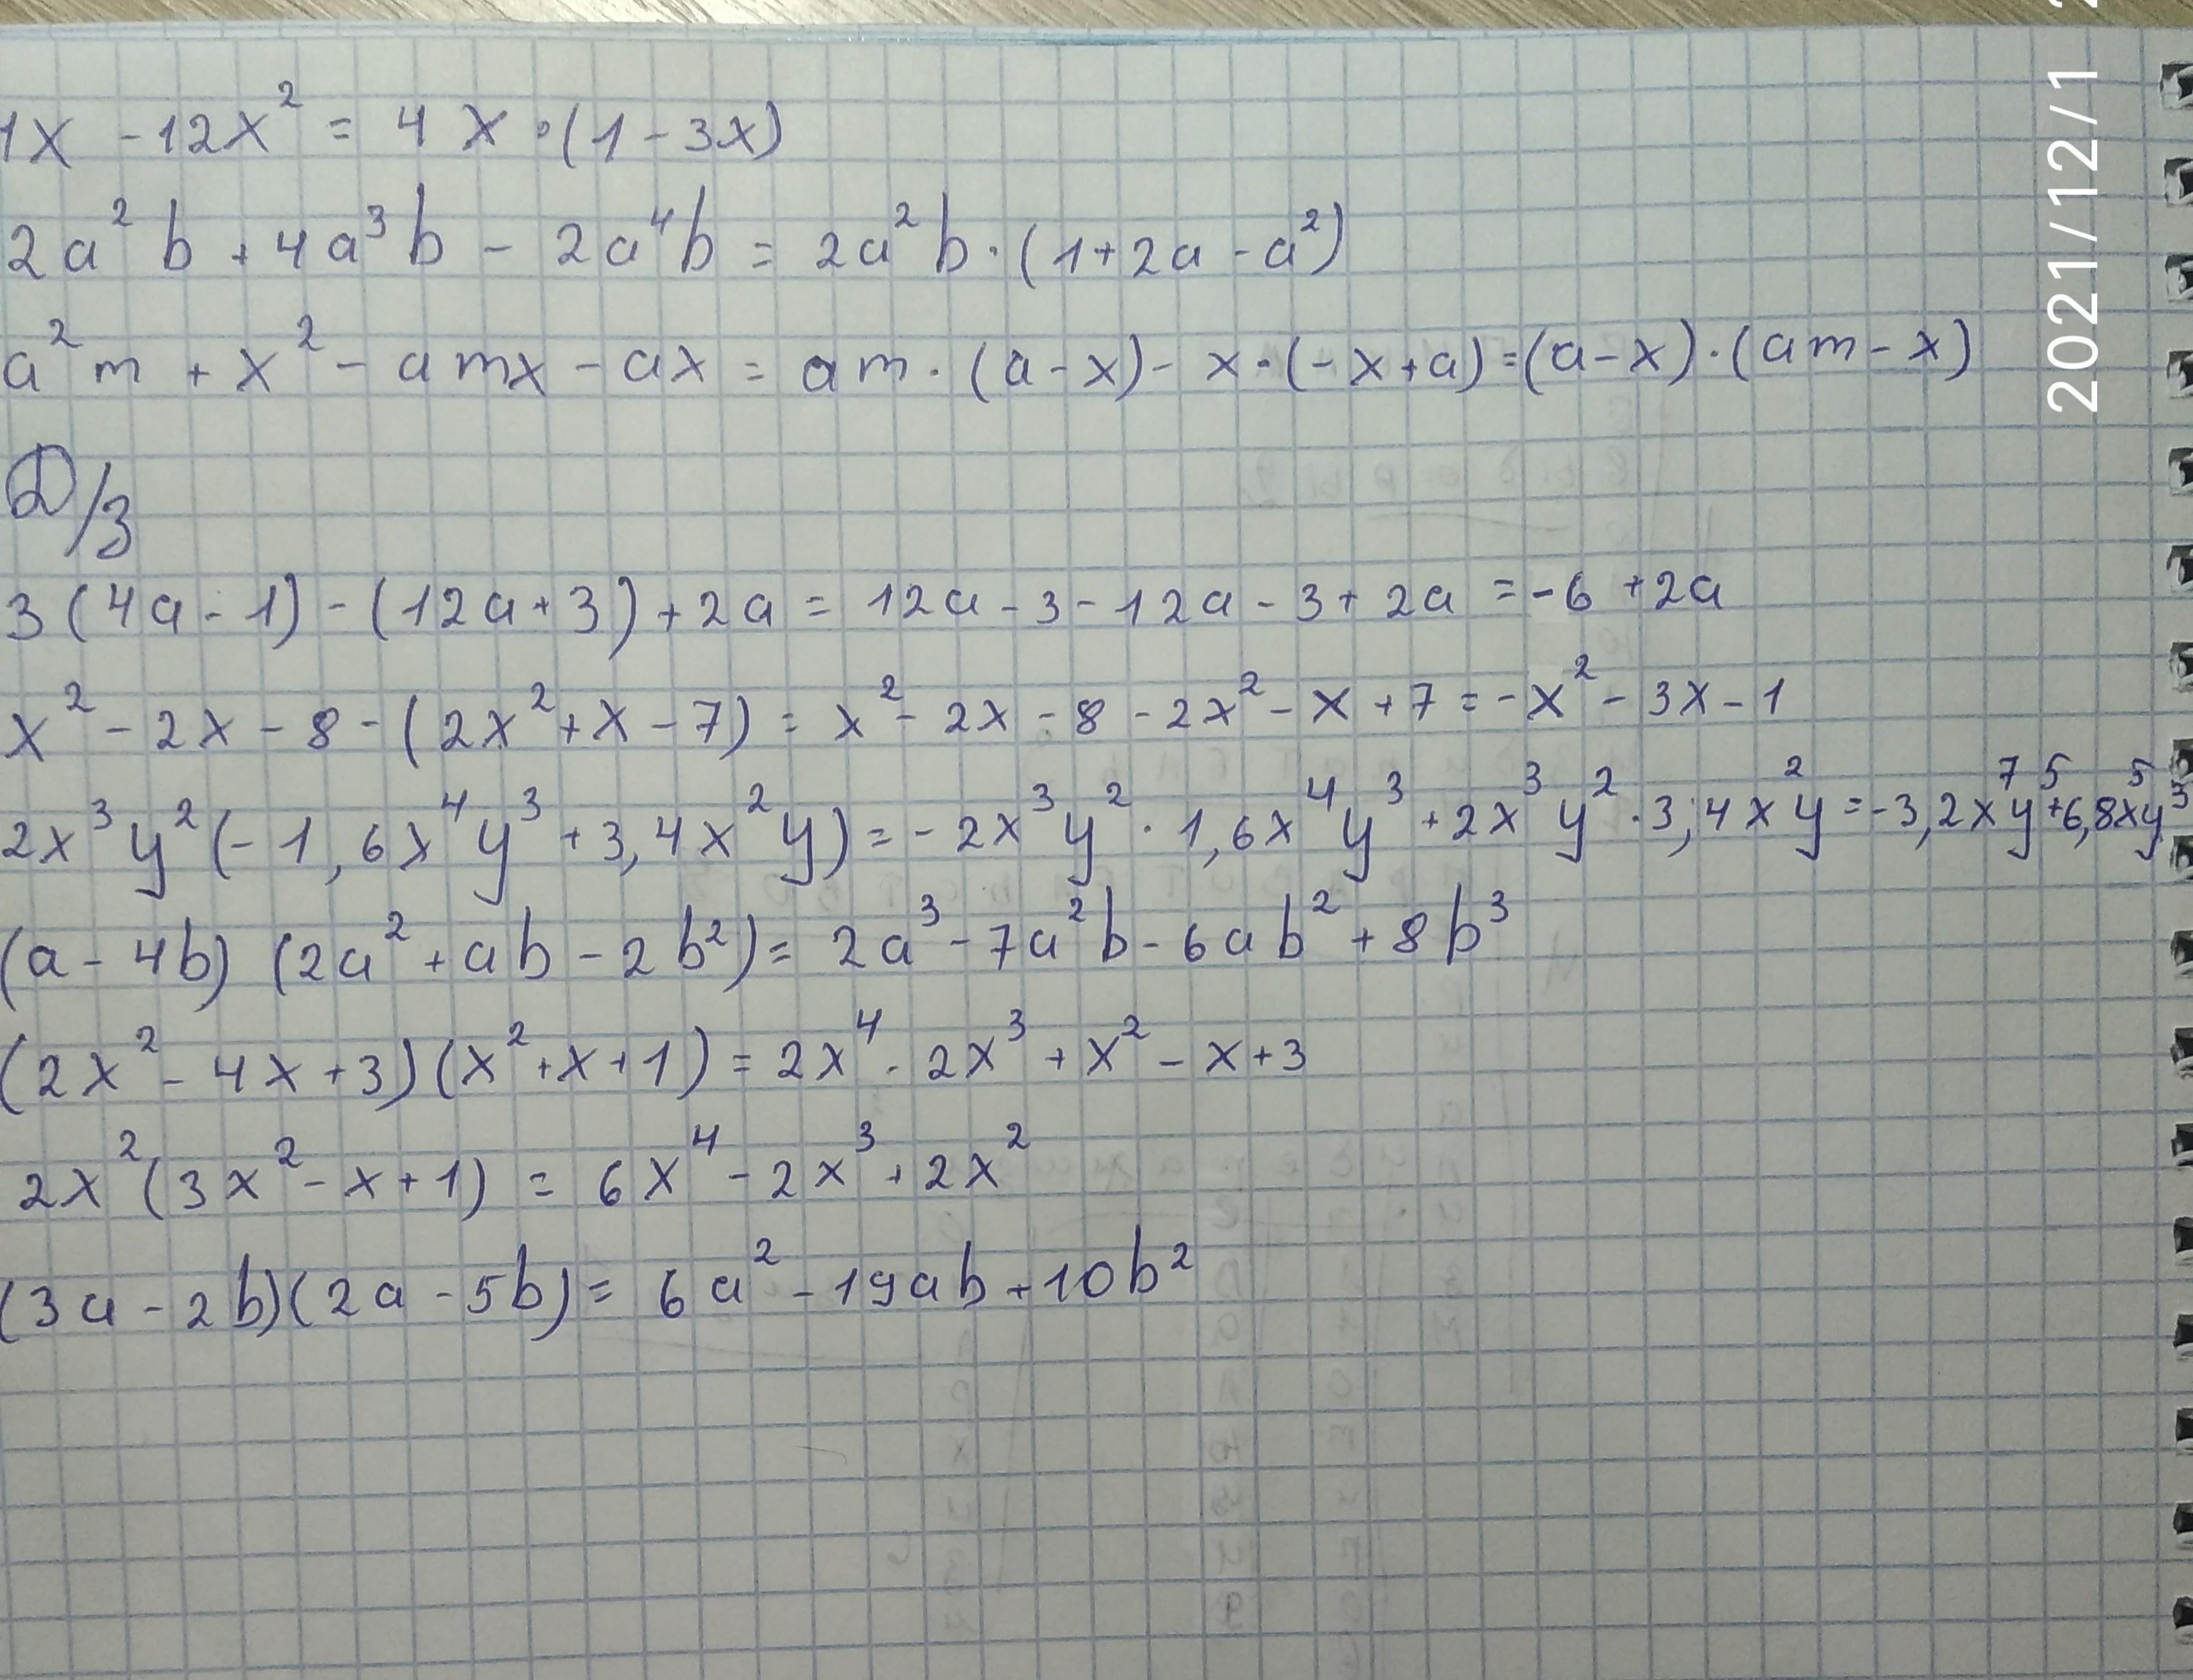 4x - 12x² = 4x · (1 - 3x)
2a²b + 4a³b - 2a⁴b = 2a²b · (1 + 2a - a²)
a²m + x² - amx - ax = am · (a - x) - x · (-x + a) = (a - x) · (am - x)
Д/З
3(4a - 1) - (12a + 3) + 2a = 12a - 3 - 12a - 3 + 2a = -6 + 2a
x² - 2x - 8 - (2x² + x - 7) = x² - 2x - 8 - 2x² - x + 7 = -x² - 3x - 1
2x³y²(-1,6x⁴y³ + 3,4x²y) = -2x³y² · 1,6x⁴y³ + 2x³y² · 3,4x²y = -3,2x⁷y⁵ + 6,8x⁵y³
(a - 4b)(2a² + ab - 2b²) = 2a³ - 7a²b - 6ab² + 8b³
(2x² - 4x + 3)(x² + x + 1) = 2x⁴ - 2x³ + x² - x + 3
2x²(3x² - x + 1) = 6x⁴ - 2x³ + 2x²
(3a - 2b)(2a - 5b) = 6a² - 19ab + 10b²
2021/12/1